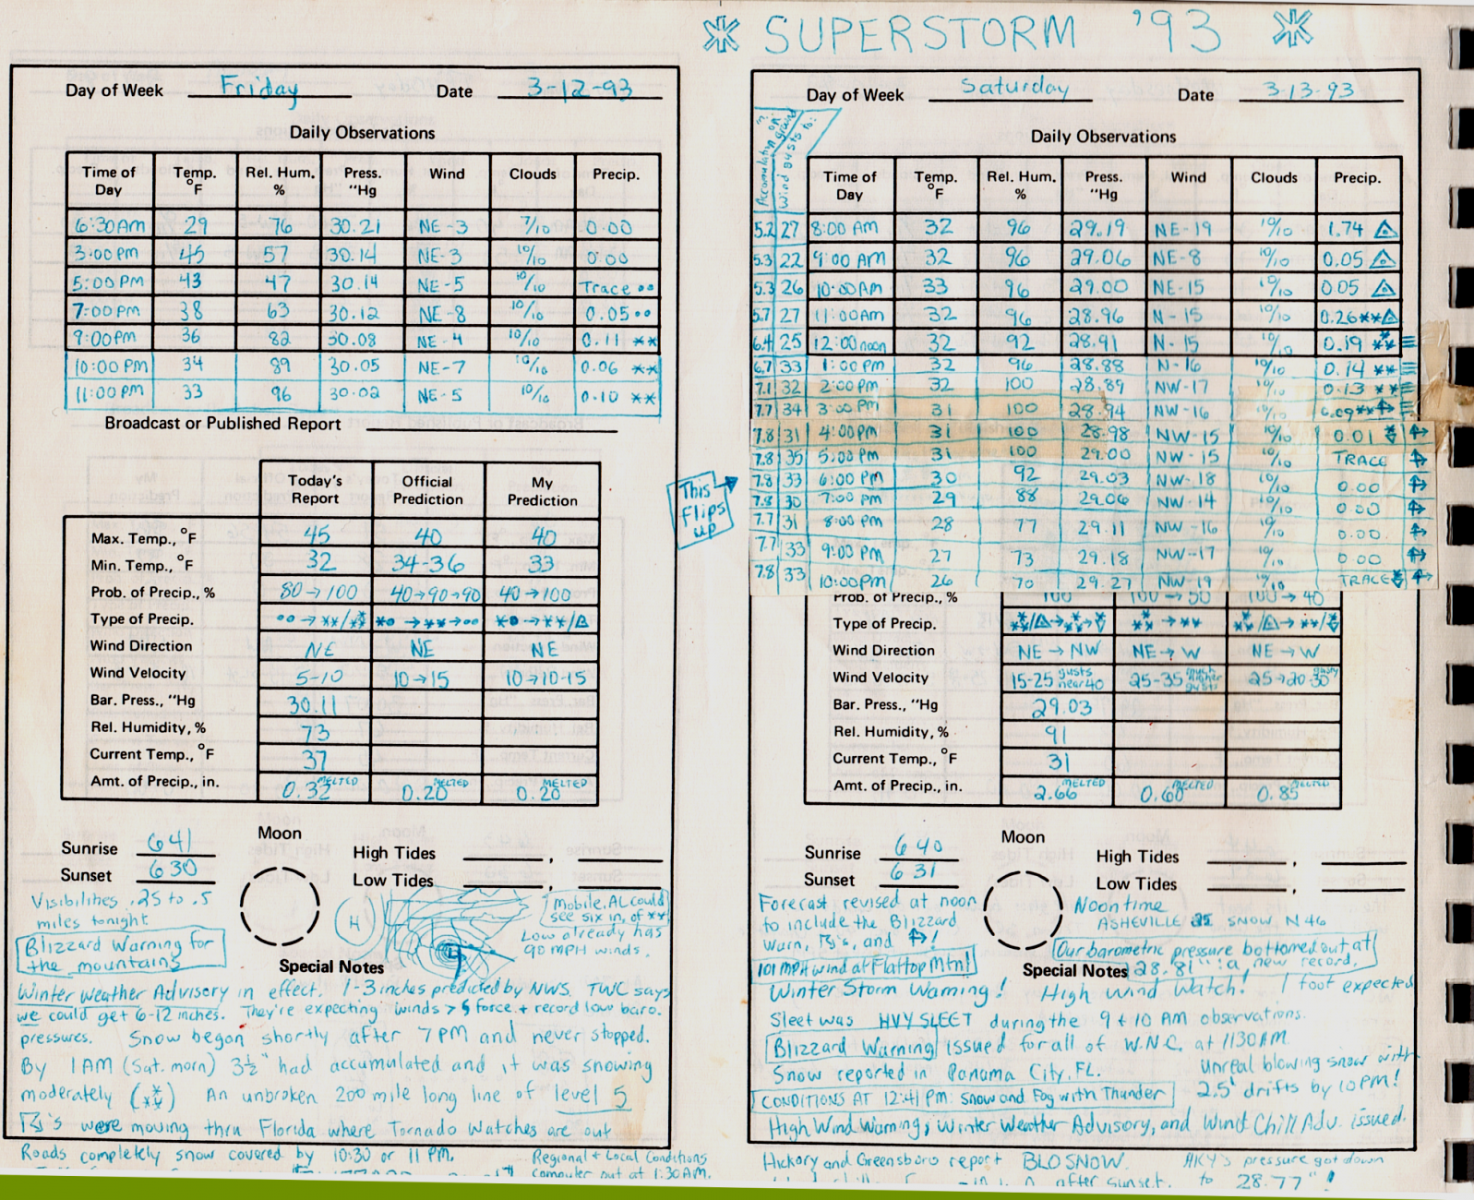 * SUPERSTORM '93 *
Day of Week Friday Date 3-12-93
Daily Observations
Time of Day Temp. °F Rel. Hum. % Press. "Hg Wind Clouds Precip.
6:30AM 29 76 30.21 NE-3 7/10 0.00
3:00pm 45 57 30.14 NE-3 10/10 0.00
5:00pm 43 47 30.14 NE-5 10/10 Trace ••
7:00pm 38 63 30.12 NE-8 10/10 0.05 ••
9:00pm 36 82 30.08 NE-4 10/10 0.11 **
10:00pm 34 89 30.05 NE-7 10/10 0.06 **
11:00pm 33 96 30.02 NE-5 10/10 0.10 **
Broadcast or Published Report
Today's Report Official Prediction My Prediction
Max. Temp., °F 45 40 40
Min. Temp., °F 32 34-36 33
Prob. of Precip., % 80→100 40→90→90 40→100
Type of Precip.
Wind Direction NE NE NE
Wind Velocity 5-10 10→15 10→10-15
Bar. Press., "Hg 30.11
Rel. Humidity, % 73
Current Temp., °F 37
Amt. of Precip., in. 0.32 MELTED 0.20 MELTED 0.20 MELTED
Sunrise 6 41
Sunset 6 30
Moon
High Tides ,
Low Tides ,
Visibilities .25 to .5
miles tonight
Blizzard Warning for
the mountains
H
L
Mobile, AL could
see six in. of **
Low already has
90 MPH winds.
Special Notes
Winter Weather Advisory in effect. 1-3 inches predicted by NWS. TWC says
we could get 6-12 inches. They're expecting winds > force + record low baro.
pressures. Snow began shortly after 7PM and never stopped.
By 1AM (Sat. morn) 3½" had accumulated and it was snowing
moderately An unbroken 200 mile long line of level 5
's were moving thru Florida where Tornado Watches are out
Roads completely snow covered by 10:30 or 11 PM.
Regional + Local Conditions
computer out at 1:30AM.
Day of Week Saturday Date 3-13-93
Daily Observations
Accumulation on ground
Wind gusts to:
Time of Day Temp. °F Rel. Hum. % Press. "Hg Wind Clouds Precip.
5.2 27 8:00 Am 32 96 29.19 NE-19 10/10 1.74
5.3 22 9:00 AM 32 96 29.06 NE-8 10/10 0.05
5.3 26 10:00AM 33 96 29.00 NE-15 10/10 0.05
5.7 27 11:00am 32 96 28.96 N-15 10/10 0.26**
6.4 25 12:00noon 32 92 28.91 N-15 10/10 0.19
6.7 33 1:00pm 32 96 28.88 N-16 10/10 0.14 **
7.1 32 2:00pm 32 100 28.89 NW-17 10/10 0.13 **
7.7 34 3:00pm 31 100 28.94 NW-16 10/10 0.09**
7.8 31 4:00pm 31 100 28.98 NW-15 10/10 0.01
7.8 35 5:00pm 31 100 29.00 NW-15 10/10 TRACE
7.8 33 6:00pm 30 92 29.03 NW-18 10/10 0.00
7.8 30 7:00pm 29 88 29.06 NW-14 10/10 0.00
7.7 31 8:00pm 28 77 29.11 NW-16 10/10 0.00
7.7 33 9:00pm 27 73 29.18 NW-17 10/10 0.00
7.8 33 10:00pm 26 70 29.27 NW-19 10/10 TRACE
This
Flips
up
Prob. of Precip., % 100 100→50 100→40
Type of Precip.
Wind Direction NE→NW NE→W NE→W
Wind Velocity 15-25 gusts near 40 25-35 25→20-30 gusty
Bar. Press., "Hg 29.03
Rel. Humidity, % 91
Current Temp., °F 31
Amt. of Precip., in. 2.66 MELTED 0.60 MELTED 0.85 MELTED
Sunrise 6 40
Sunset 6 31
Moon
High Tides ,
Low Tides ,
Forecast revised at noon
to include the Blizzard
Warn, 's, and !
101 MPH wind at Flattop Mtn!
Noontime
ASHEVILLE 25 SNOW, N 46
Our barometric pressure bottomed out at
28.81": a new record.
Special Notes
Winter Storm Warning! High Wind Watch! 1 foot expected
Sleet was HVY SLEET during the 9 + 10 AM observations.
Blizzard Warning issued for all of W.N.C. at 1130AM
Snow reported in Panama City, FL.
Unreal blowing snow with
2.5' drifts by 10PM!
CONDITIONS AT 12:41 PM: Snow and Fog with Thunder
High Wind Warning, Winter Weather Advisory, and Wind Chill Adv. issued.
Hickory and Greensboro report BLOSNOW.
AKY's pressure got down
to 28.77"!
after sunset.